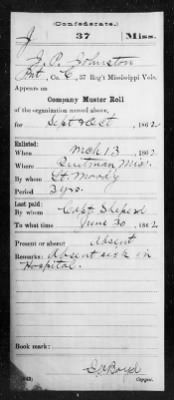 (Confederate.)
J 37 Miss.
J. P. Johnston
Pvt, Co. C, 37 Reg't Mississippi Vols.
Appears on
Company Muster Roll
of the organization named above,
for Sept & Oct, 1862.
Enlisted:
When Mch 13, 1862.
Where Quitman Miss.
By whom Lt. Moody
Period 3 yrs.
Last paid:
By whom Capt. Sheperd
To what time June 30, 1862.
Present or absent Absent
Remarks: Absent sick in
Hospital.
Book mark:
Boyd
Copyist.